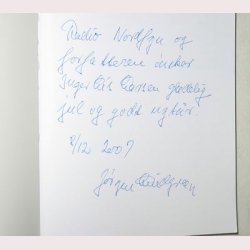 Radio Nordfyn og
forfatteren ønsker
Inger Lis Larsen glædelig
jul og godt nytår.
8/12 2007
Jørgen Lindgreen